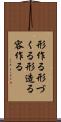 形作る形づ
くる形造る
容作る